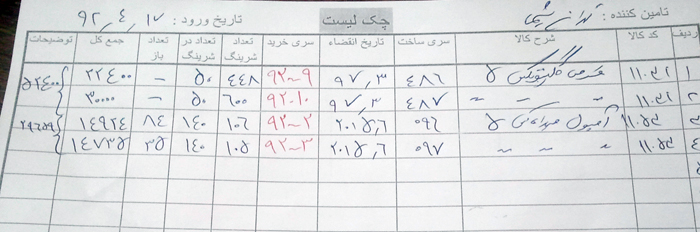 تامین کننده : تهران شیمی چک لیست تاریخ ورود : ۹۲,۴,۱۷
ردیف کد کالا شرح کالا سری ساخت تاریخ انقضاء سری خرید تعداد شرینگ تعداد در شرینگ تعداد باز جمع کل توضیحات
۱ قرص ۵ ۴۸۶ ۹۷,۳ ۹۲-۹ ۴۴۸ ۵۰ - ۲۲۴۰۰ ۵۲۴۰۰
۲ " " ۴۸۷ ۹۷,۳ ۹۲-۱۰ ۶۰۰ ۵۰ - ۳۰۰۰۰
۳ آمپول ۵ ۰۹۶ ۲۰۱۵,۶ ۹۲-۲ ۱۰۶ ۱۴۰ ۸۴ ۱۴۹۲۴ ۲۹۶۵۹
۴ " " ۰۹۷ ۲۰۱۵,۶ ۹۲-۳ ۱۰۵ ۱۴۰ ۳۵ ۱۴۷۳۵